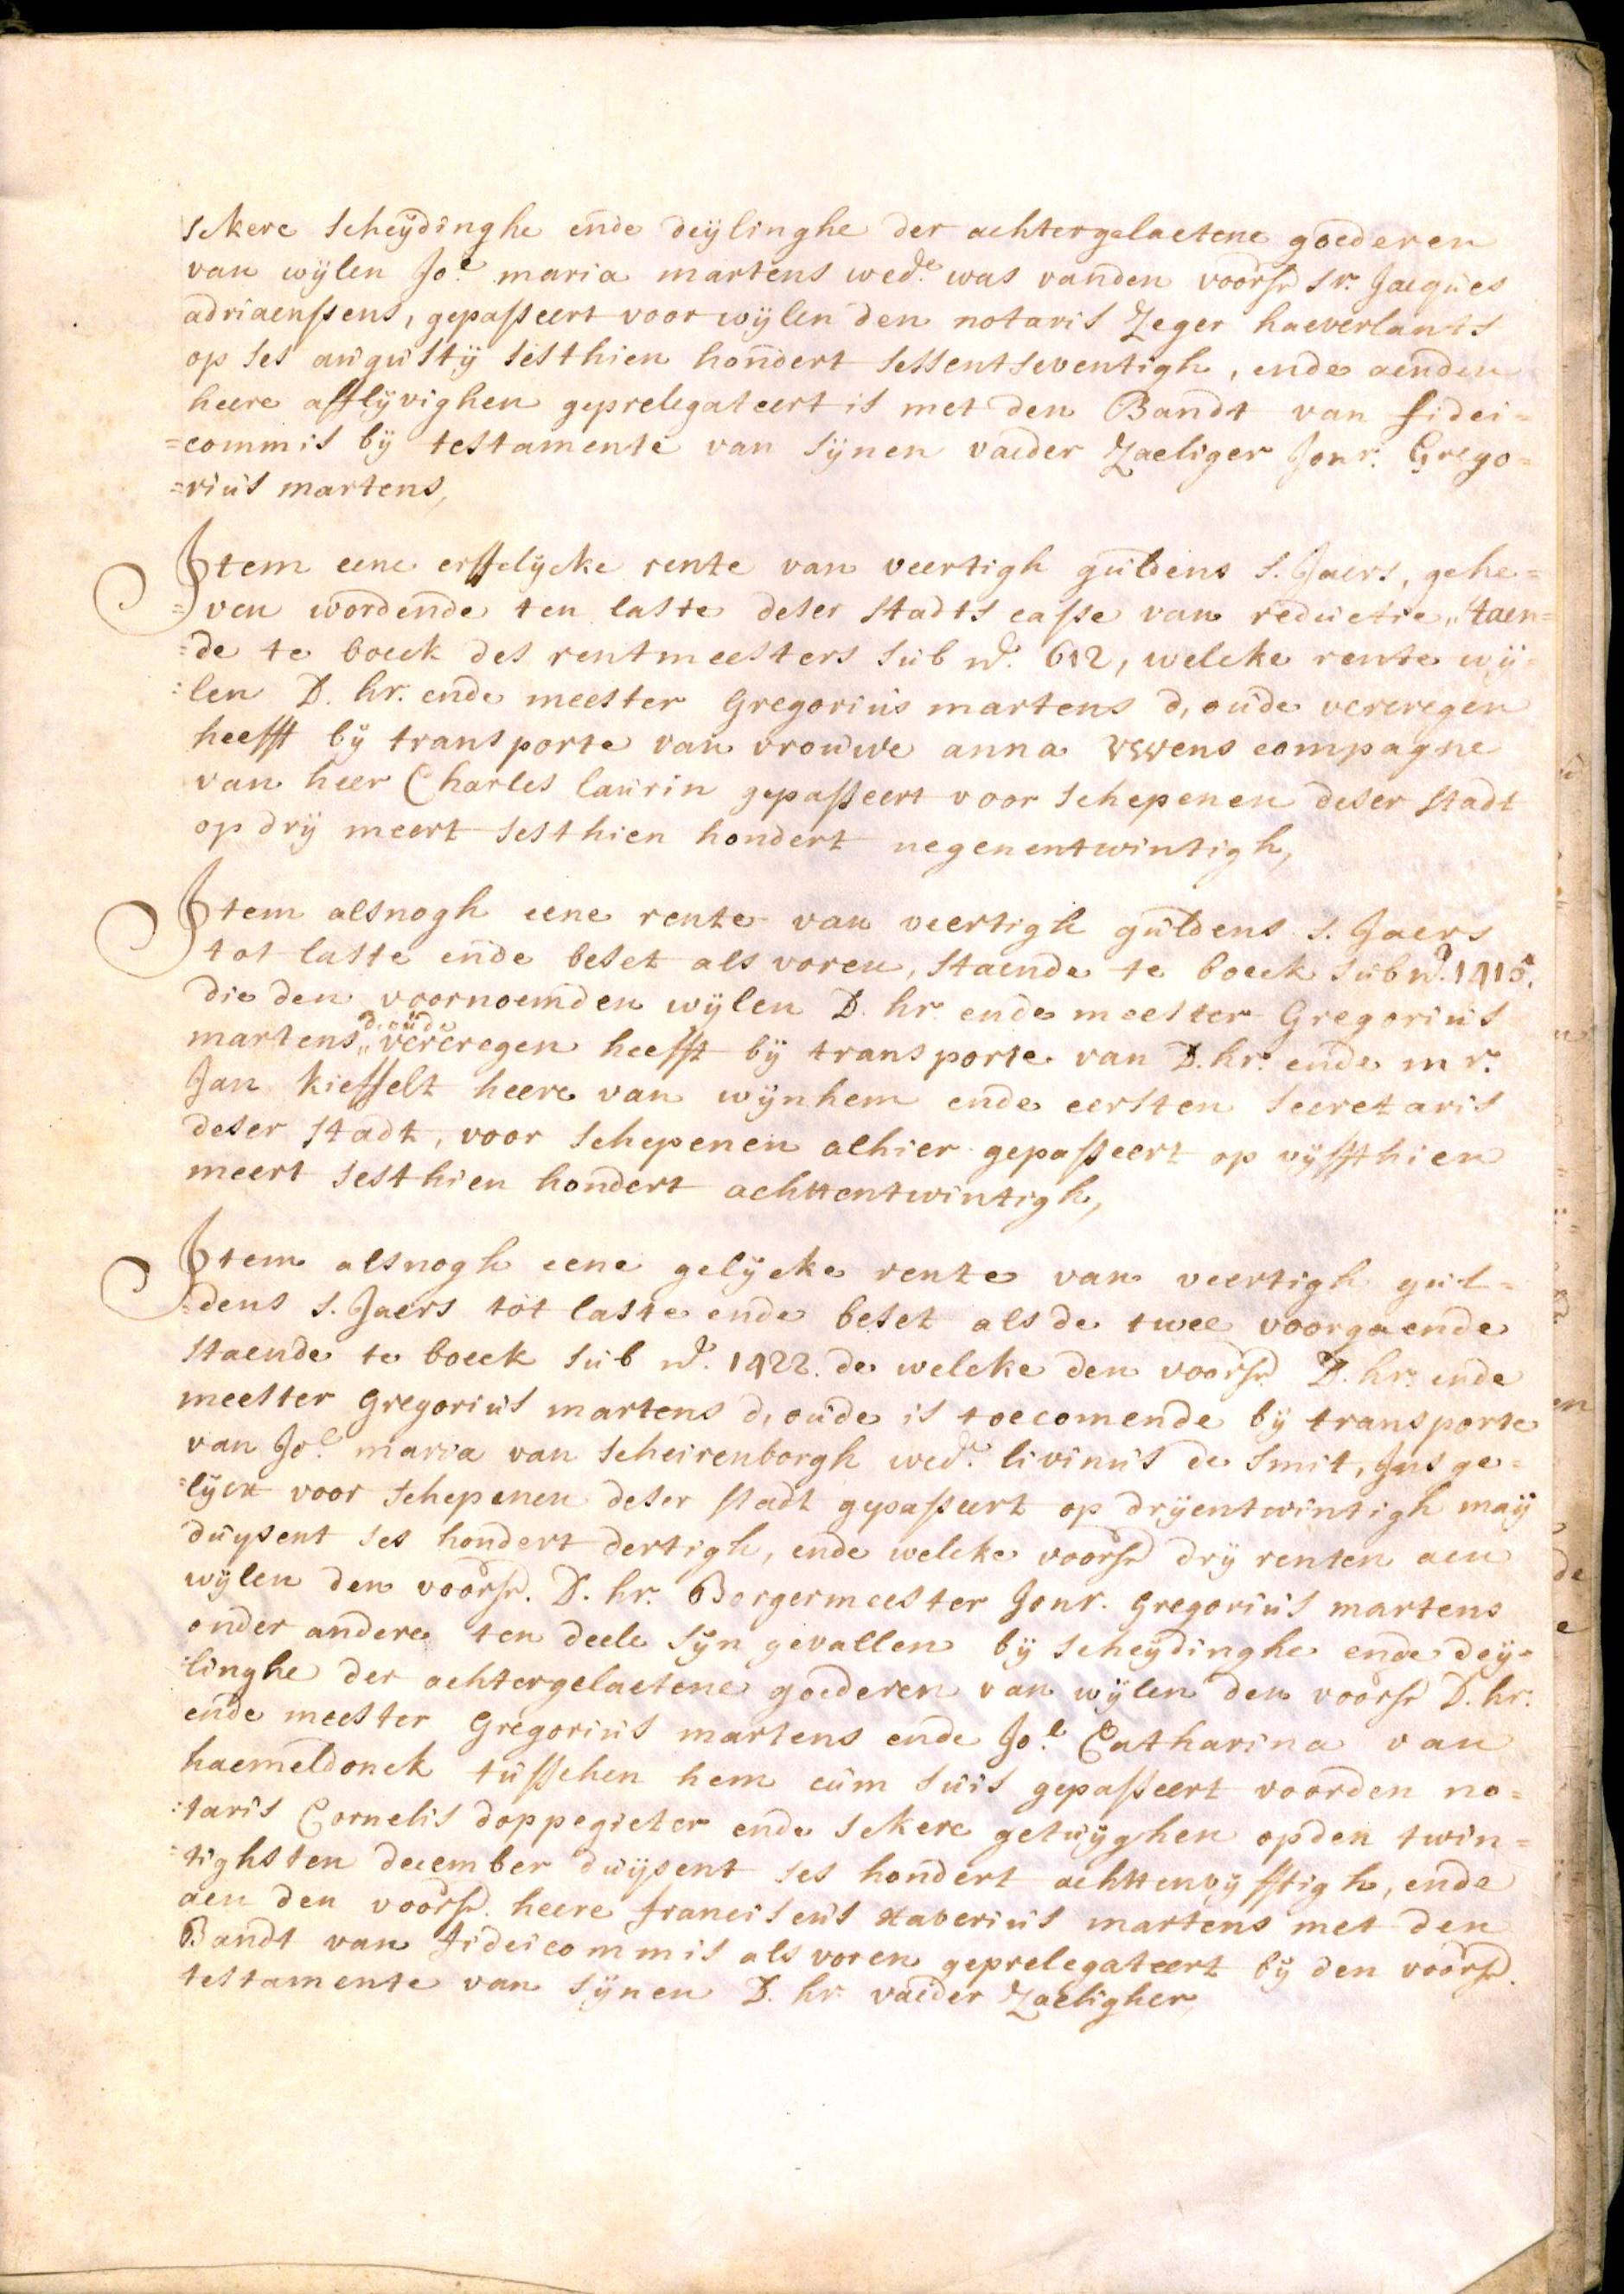 sekere scheÿdinghe ende deÿlinghe der achtergelaetene goederen
van wÿlen Jo.e maria martens wed.e was vanden voors. sr. Jacques
adriaenssens, gepasseert voor wÿlen den notaris Zeger haeverlants
op ses augustÿ sesthien hondert sessentseventigh, ende aenden
heere afflÿvighen geprelegateert is met den Bandt van fidei=
=commis bÿ testamente van sÿnen vaeder Zaeliger Jonr. Grego=
=rius martens,
Item eene erffelÿcke rente van veertigh guldens s. Jaers, gehe=
=ven wordende ten laste deser stadts casse van reductie, staen=
=de te boeck des rentmeesters sub N.o 612, welcke rente wÿ=
=len D. hr. ende meester Gregorius martens d, oude vercregen
heefft bÿ transporte van vrouwe anna compagne
van heer Charles laurin gepasseert voor schepenen deser stadt
op drÿ meert sesthien hondert negenentwintigh,
Item alsnogh eene rente van veertigh guldens s. Jaers
tot laste ende beset als voren, staende te boeck sub N.o
die den voornoemden wÿlen D. hr. ende meester Gregorius
martens d, oude vercregen heefft bÿ transporte van D. hr. ende mr.
Jan kieffelt heere van wÿnhem ende eersten secretaris
deser stadt, voor schepenen alhier gepasseert op vÿffthien
meert sesthien hondert achttentwintigh,
Item alsnogh eene gelÿcke rente van veertigh gul=
=dens s. Jaers tot laste ende beset als de twee voorgaende
staende te boeck sub N.o 1422. de welcke den voors. D. hr. ende
meester Gregorius martens d, oude is toecomende bÿ transporte
van Jo.e maria van Scheirenborgh wed.e livinus de Smit, Insge=
=lÿcx voor schepenen deser stadt gepasseert op drÿentwintigh maÿ
duÿsent ses hondert dertigh, ende welcke voors. drÿ renten aen
wÿlen den voors. D. hr. Borgermeester Jonr. Gregorius martens
onder andere ten deele sÿn gevallen bÿ scheÿdinghe ende deÿ=
=linghe der achtergelaetene goederen van wÿlen den voors. D. hr.
ende meester Gregorius martens ende Jo.e Catharina van
haemeldonck tusschen hem cum suis gepasseert voorden no=
=taris Cornelis doppegieter ende sekere getuÿghen opden twin=
=tighsten december duÿsent ses hondert achttenvÿfftigh, ende
aen den voors. heere franciscus xaverius martens met den
Bandt van fideicommis als voren geprelegateert bÿ den voors.
testamente van sÿnen D. hr. vaeder Zaeligher,